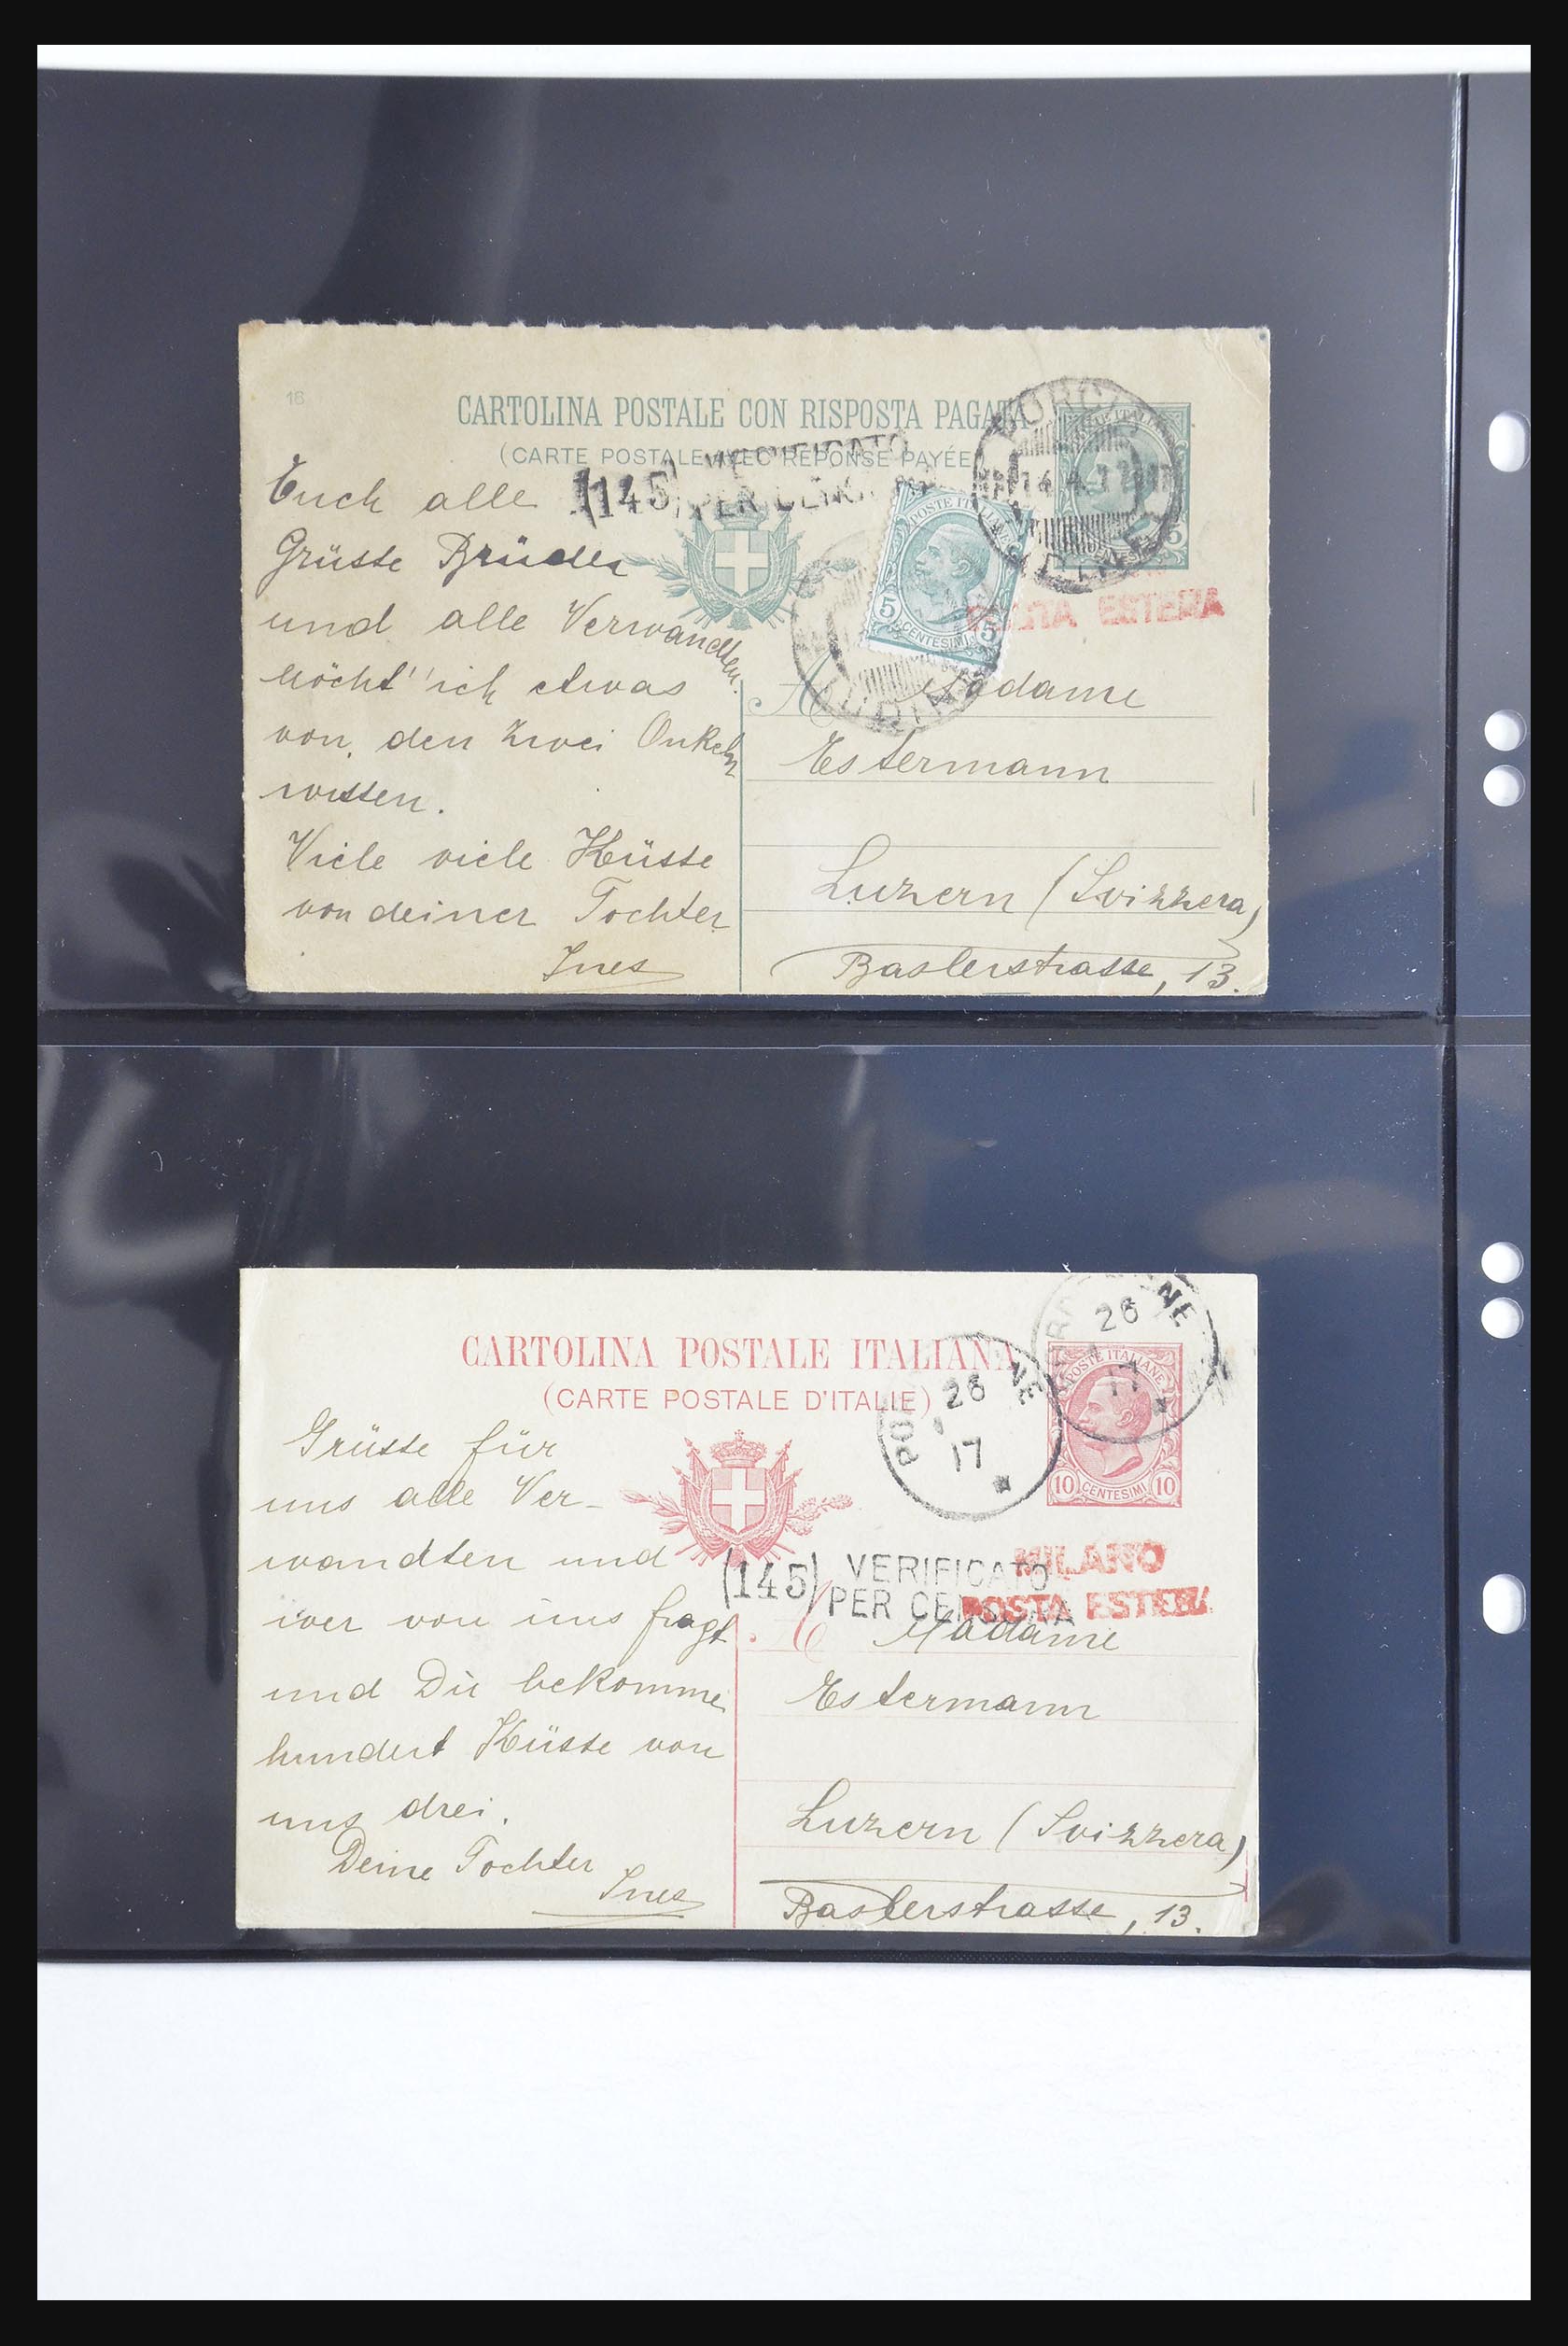 16
CARTOLINA POSTALE CON RISPOSTA PAGATA
(CARTE POSTALE AVEC RÉPONSE PAYÉE
(145) VERIFICATO
PER
POSTE ITALIANE
5 CENTESIMI 5
POSTA ESTERA
UDINE
Euch alle
Grüsse Brüder
und alle Verwandten.
möcht' ich etwas
von den zwei Onkeln
wissen.
Viele viele Küsse
von deiner Tochter
Ines
A Madame
Estermann
Luzern (Svizzera)
Baslerstrasse, 13.
CARTOLINA POSTALE ITALIANA
(CARTE POSTALE D'ITALIE)
28
17
26
17
POSTE ITALIANE
10 CENTESIMI 10
(145) VERIFICATO
PER CENSURA
MILANO
POSTA ESTERA
Grüsse für
uns alle Ver-
wandten und
wer von uns fragt
und Du bekomme
hundert Küsse von
uns drei.
Deine Tochter
Ines
A Madame
Estermann
Luzern (Svizzera)
Baslerstrasse, 13.